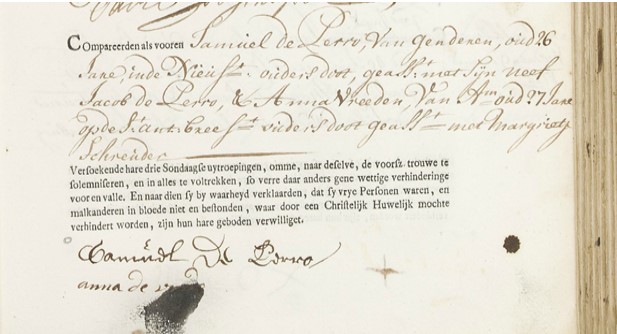 Compareerden als vooren Samuel de Perro, van Genderen, oud 26
Jare, inde Nieus:t ouders doot, geass:t met sijn neef
Jacob de Perro, & Anna Vreeden, van A:m oud 27 Jare
opde S:t ant: brees:t ouders doot geass:t met Margrietje
Schreuder
Versoekende hare drie Sondaagse uytroepingen, omme, naar deselve, de voorsz. trouwe te
solemniseren, en in alles te voltrekken, so verre daar anders gene wettige verhinderinge
voor en valle. En naar dien sy by waarheyd verklaarden, dat sy vrye Personen waren, en
malkanderen in bloede niet en bestonden, waar door een Christelijk Huwelijk mochte
verhindert worden, zijn hun hare geboden verwilliget.
Samuel De Perro
anna de